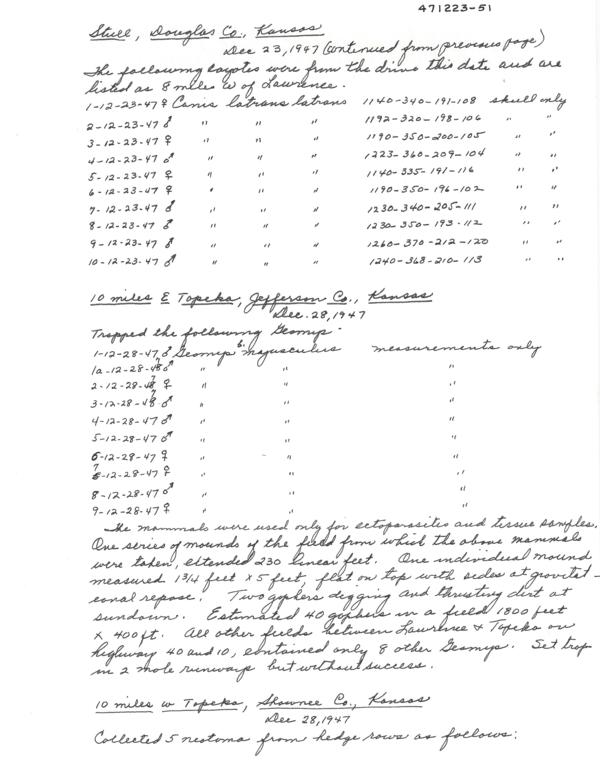 471223-51
Stull, Douglas Co., Kansas
Dec 23, 1947 (continued from previous page)
The following coyotes were from the drive this date and are
listed as 8 miles W of Lawrence.
1-12-23-47 ♀ Canis latrans latrans 1140-340-191-108 skull only
2-12-23-47 ♂ " " " 1192-320-198-106 " "
3-12-23-47 ♀ " " " 1190-350-200-105 " "
4-12-23-47 ♂ " " " 1223-360-209-104 " "
5-12-23-47 ♀ " " " 1140-335-191-116 " "
6-12-23-47 ♀ " " " 1190-350-196-102 " "
7-12-23-47 ♂ " " " 1230-340-205-111 " "
8-12-23-47 ♂ " " " 1230-350-193-112 " "
9-12-23-47 ♂ " " " 1260-370-212-120 " "
10-12-23-47 ♂ " " " 1240-368-210-113 " "
10 miles E Topeka, Jefferson Co., Kansas
Dec. 28, 1947
Trapped the following Geomys.
1-12-28-47 ♂ Geomys b. majusculus measurements only
1a-12-28-47 ♂ " " "
2-12-28-47 ♀ " " "
3-12-28-47 ♂ " " "
4-12-28-47 ♂ " " "
5-12-28-47 ♂ " " "
6-12-28-47 ♀ " " "
7-12-28-47 ♀ " " "
8-12-28-47 ♂ " " "
9-12-28-47 ♀ " " "
The mammals were used only for ectoparasites and tissue samples.
One series of mounds of the field from which the above mammals
were taken, extended 230 linear feet. One individual mound
measured 1 3/4 feet x 5 feet, flat on top with sides at gravitat-
ional repose. Two gophers digging and thrusting dirt at
sundown. Estimated 40 gophers in a field 1800 feet
x 400 ft. All other fields between Lawrence & Topeka on
highway 40 and 10, contained only 8 other Geomys. Set trap
in 2 mole runways but without success.
10 miles W Topeka, Shawnee Co., Kansas
Dec 28, 1947
Collected 5 neotoma from hedge rows as follows: